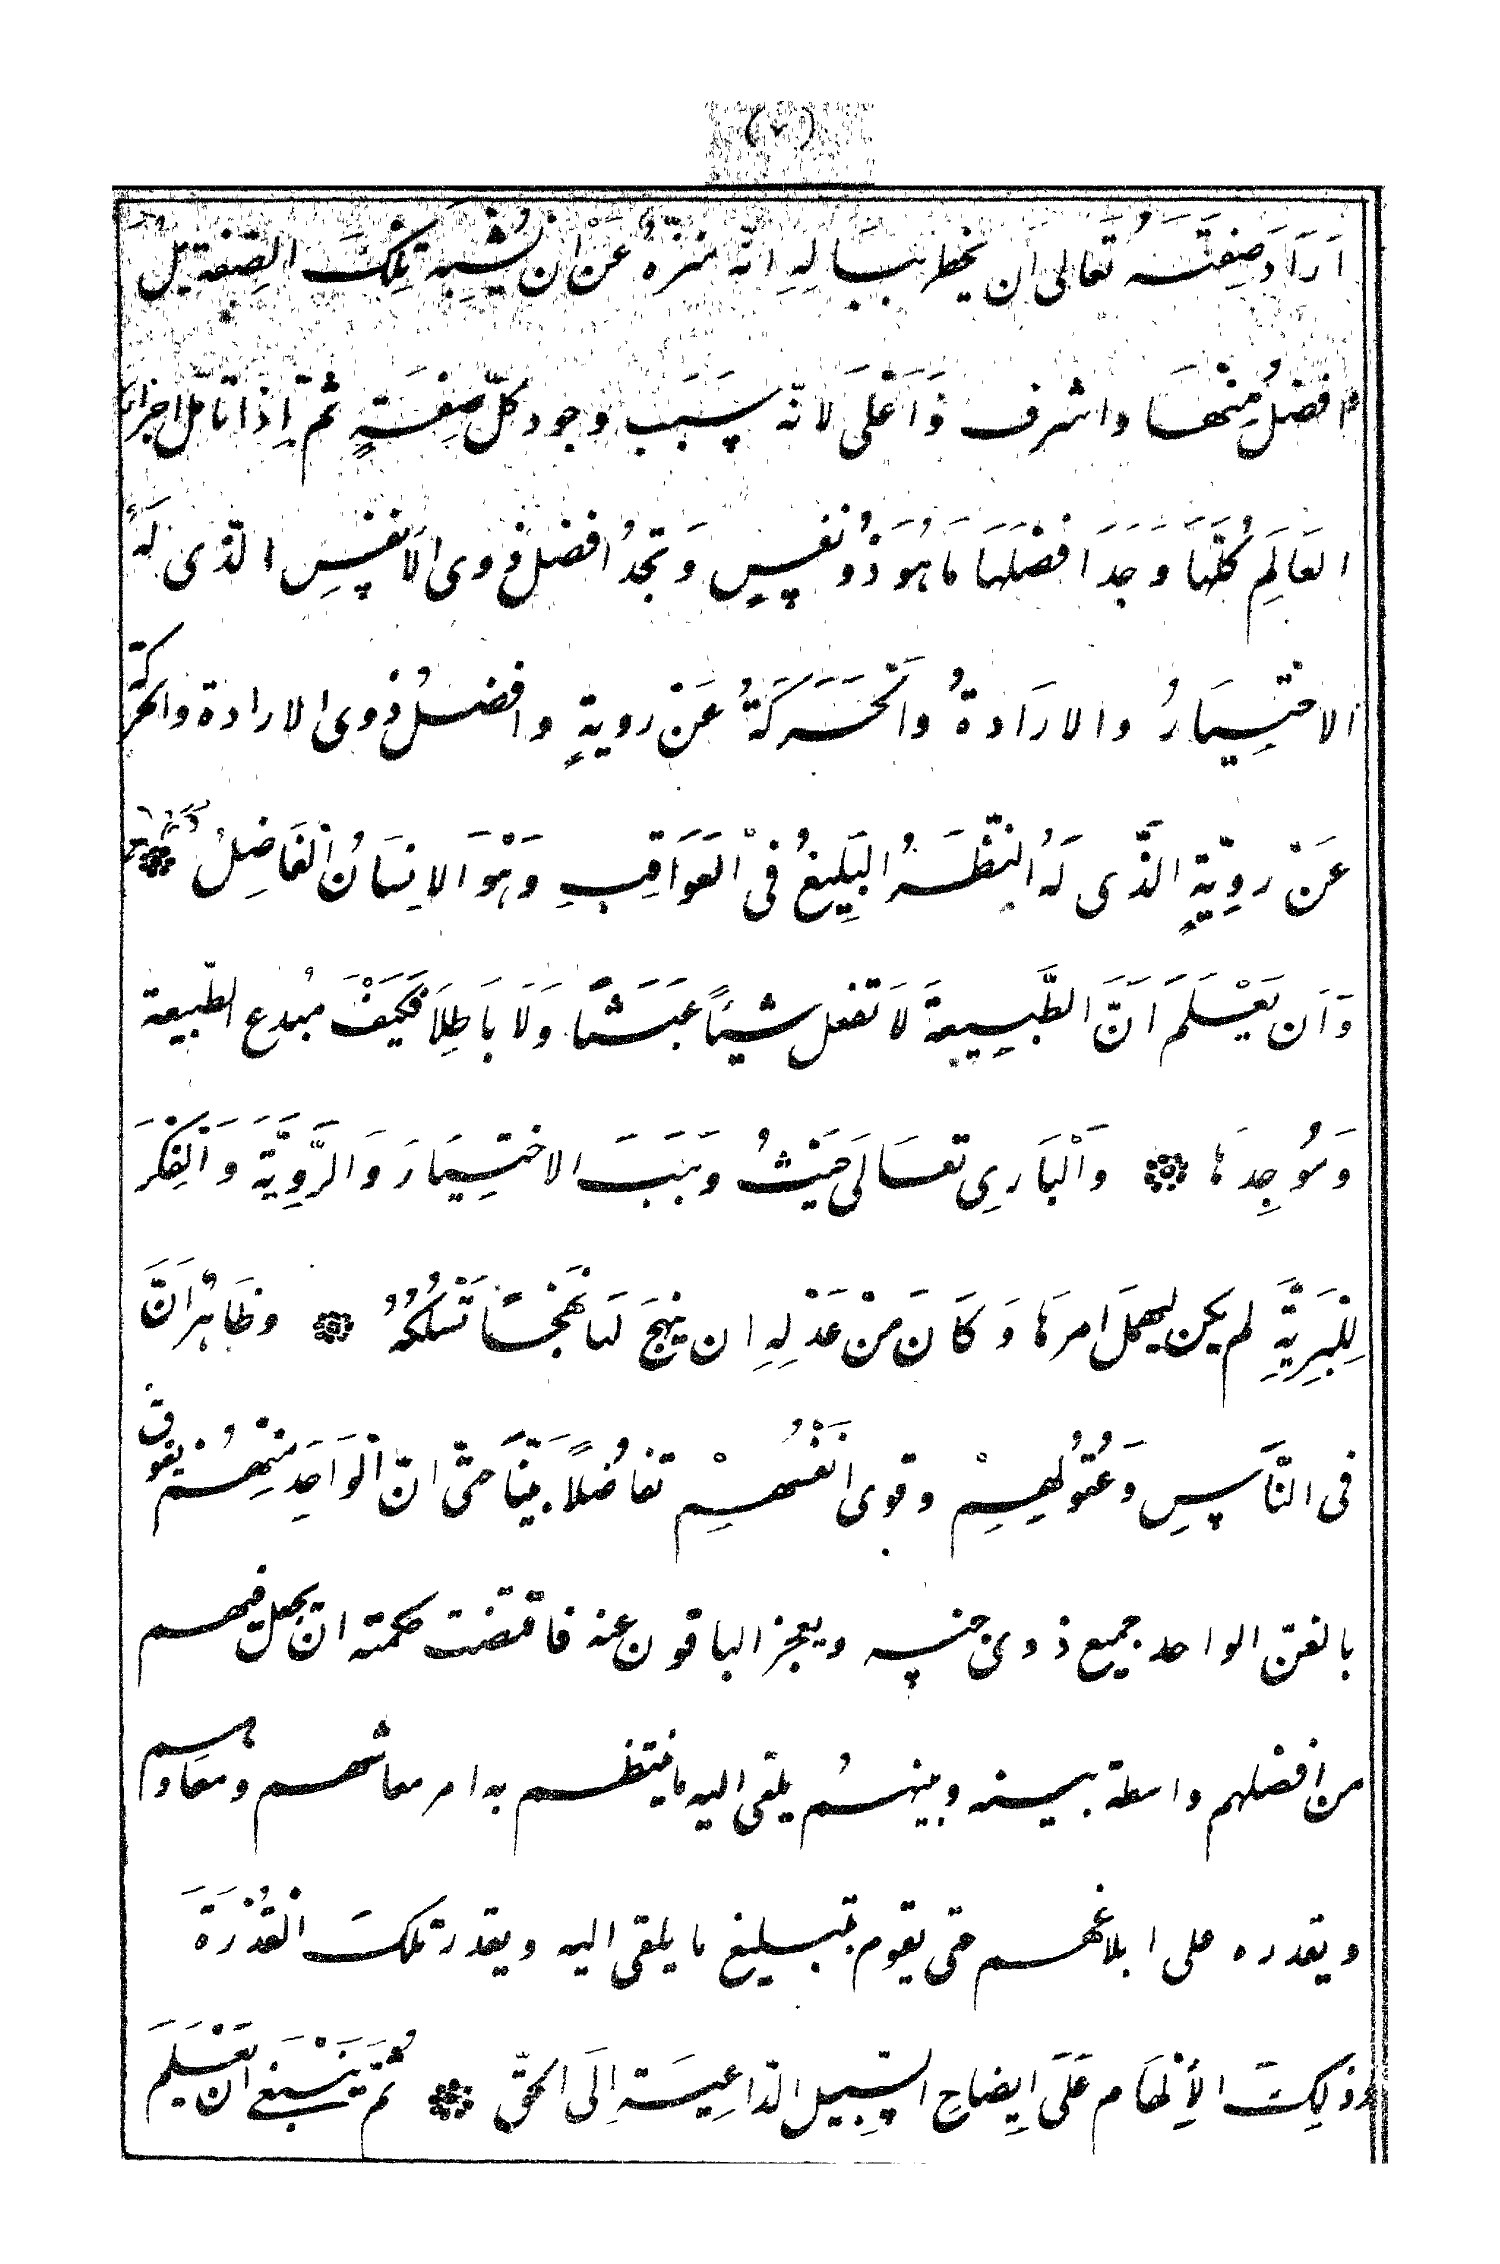 (٧)
اَرَادَ صِفَتَهُ تَعَالى اَن يخطر بِبَالِهِ انّه منزّهُ عَنْ ان يُشبِهَ تِلكَ الصِفة بل
افضلُ مِنْهَا واشرف وَاَعْلى لانّه سَبَب وجود كلّ صِفةٍ ثمّ اِذا تامّل اجزاء
العَالَمِ كُلّهَا وَجَدَ افضَلَهَا مَا هُوَ ذُو نفسٍ وَتجدُ افضل ذوى الاَنفسِ الّذى لَهُ
الاختِيَارُ والارَادةُ وَالحَرَكَةُ عَنْ رويةٍ وافضلُ ذوى الارادة والحركة
عَنْ رويّةٍ الّذى لَهُ النّظَرُ البَلِيغُ فىْ العَوَاقِبِ وَهْوَ الانِسَانُ الفَاضِلُ
وَاَن يَعْلَمَ اَنّ الطَّبِيعةَ لاَ تفعل شيئاً عَبَثًا وَلَا بَاطِلَا فَكَيْفَ مبدع الطّبيعة
وَمُوجِدهَا ۞ وَالْبَارِى تعَالَى حَيْثُ وَهَبَ الاختِيَارَ وَالرَّوِيَّةَ وَالْفِكْرَ
لِلْبَرِيَّةِ لم يكن ليهملَ امرهَا وَكَانَ مِنْ عَدْلِهِ ان ينهجَ لنا نَهْجًا تَسْلكُهُ ۞ وظَاهِرُ اَنَّ
فى النَّاسِ وَعُقُولِهِمْ وقوى اَنْفُسُهِمْ تفاضُلاً بيّنَاً حتّى انّ الْوَاحِدَ مِنْهُمْ يفوق
بالفنّ الواحد جميع ذوى جنسه ويعجز الباقون عنه فاقتضت حكمته ان يجعل فيهم
من افضلهم واسطة بينه وبينهُم يلقى اليه ما ينتظم به امر معاشهم ومعادهم
ويقدره على ابلاغهم حتى يقوم بتبليغ ما يلقى اليه ويقدر تلكَ الْقُدْرَةَ
وذلِكَ الاِلهَام عَلَى اِيضاحِ السّبِيل الدّاعِيَةِ اِلَى الحقّ ۞ ثُمَّ يَنْبَغِى ان يَعْلَمَ